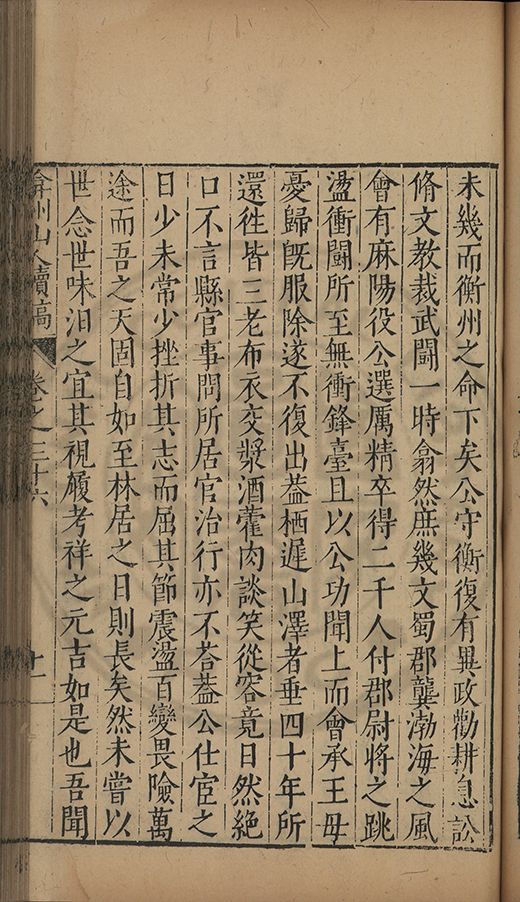 未幾而衡州之命下矣公守衡復有異政勸耕息訟
脩文教裁武鬭一時翕然庶幾文蜀郡龔渤海之風
會有麻陽役公選厲精卒得二千人付郡尉將之跳
盪衝鬭所至無衝鋒臺且以公功聞上而會承王母
憂歸旣服除遂不復出葢栖遲山澤者垂四十年所
還徃皆三老布衣交漿酒藿肉談笑從容竟日然絶
口不言縣官事問所居官治行亦不荅葢公仕宦之
日少未常少挫折其志而屈其節震盪百變畏險萬
途而吾之天固自如至林居之日則長矣然未嘗以
世念世味汨之宜其視履考祥之元吉如是也吾聞
弇州山人續稿 卷之三十六 十一